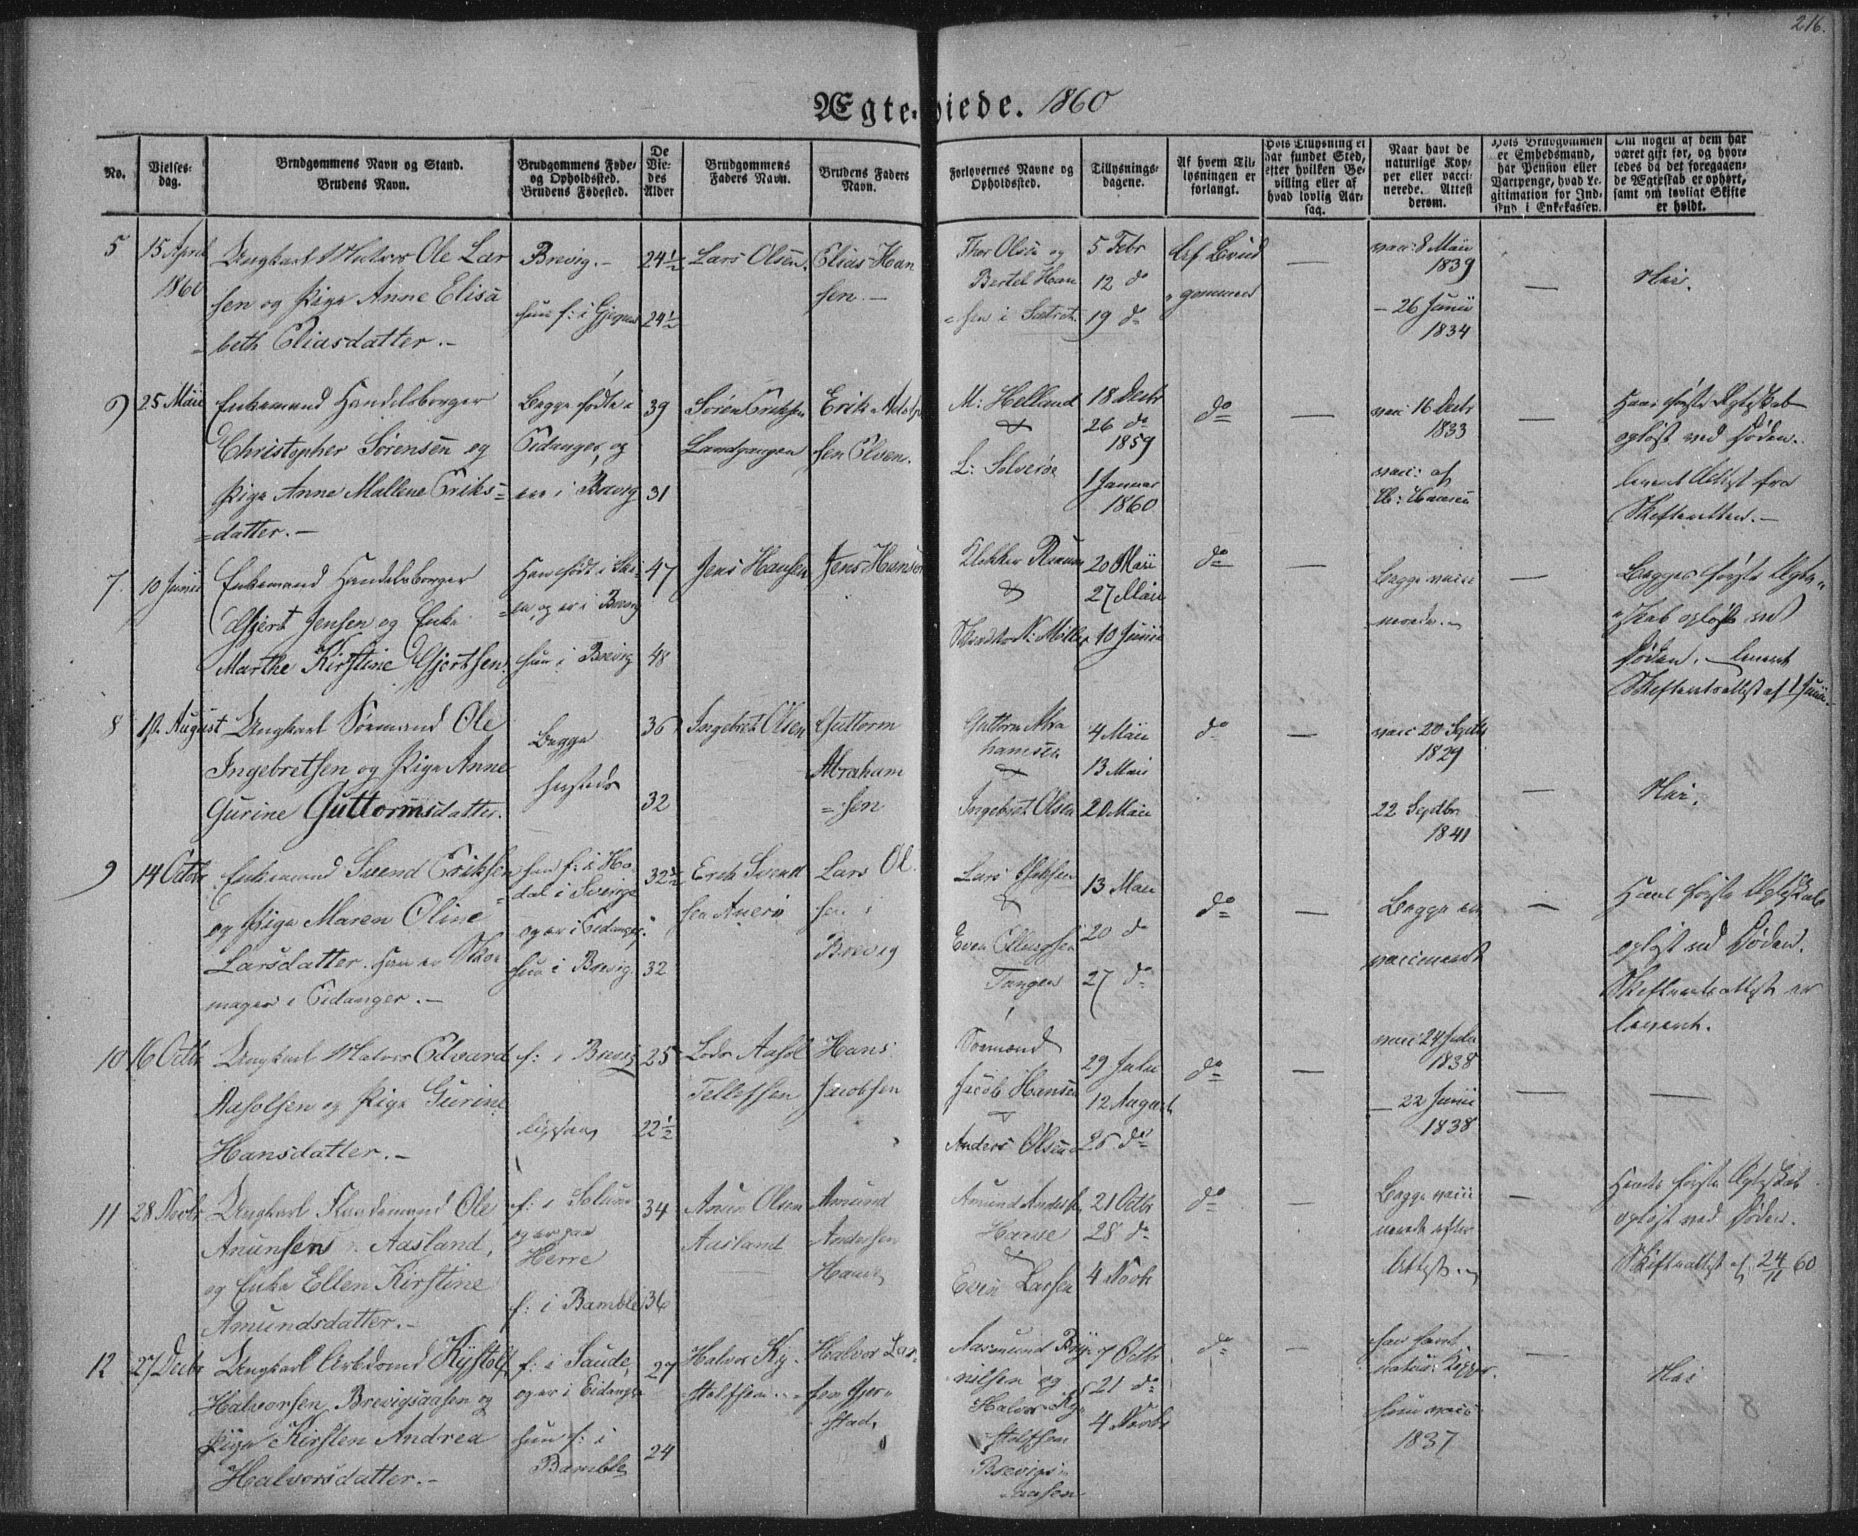 216.
Ægte-viede. 1860
No.
Vielses-
dag.
Brudgommens Navn og Stand.
Brudens Navn.
Brudgommens Føde-
og Opholdssted.
Brudens Fødested.
De
Vie-
des
Alder
Brudgommens
Faders Navn.
Brudens Faders
Navn.
Forlovernes Navne og
Opholdssted.
Tillysnings-
dagene.
Af hvem Til-
lysningen er
forlangt.
Hvis Tillysning ei
har fundet Sted,
efter hvilken Be-
villing eller af
hvad lovlig Aar-
sag.
Naar havt de
naturlige Kop-
per eller vacci-
nerede. Attest
derom.
Hvis Brudgommen
er Embedsmand,
har Pension eller
Vartpenge, hvad Le-
gitimation for Ind-
skud i Enkekassen.
Om nogen af dem har
været gift før, og hvor-
ledes da det foregaaen-
de Ægteskab er ophørt,
samt om lovligt Skifte
er holdt.
5
15 April
1860
Ungkarl Matros Ole Lar
sen og Pige Anne Elisa
beth Eliasdatter.-
Brevig.-
hun f: i
24½
24½
Lars Olsen.
Elias Han
sen.-
Thor Olsen og
Bertel Han
sen i
5 Febr
12 do
19 do
af Brud
gommen
—
vacc: 8 Maii
1839
- 26 Junii
1834
—
Nei.
6
25 Maii
Enkemand Handelsborger
Christopher Sørensen og
Pige Anne Mallene Eriks=
=datter.-
Begge fødte i
Eidanger, og
ere i Brevig
39
31
Søren Eriksen
Landgangen
Erik Adolf
sen Olsen.
M: Helland
&
L:
18 Decbr
26 do
1859
1 Januar
1860
do
—
vacc: 16 Decbr
1833
vacc: af
—
Hans første Ægteskab
opløst ved Døden.
leveret Attest fra
Skifteretten.-
7.
10 Junii
Enkemand Handelsborger
Gjert Jensen og Enke
Marthe Kirstine Gjertsen.
Han født i Ski-
en, og er i Brevig
hun i Brevig
47
48
Jens Hansen
Jens Hansen
Klokker
&
N: Møller
20 Maii
27 Maii
10 Junii
do
Begge vacci
nerede.-
—
Begges første Ægte=
=skab opløst ved
Døden. - leveret
Skifteretsattest af 1 Junii.
8
August
Ungkarl Sømand Ole
Ingebretsen og Pige Anne
Gurine Guttormsdatter.
Begge
hersteds
36
32
Ingebret Olsen
Guttorm
Abraham
=sen
Guttorm Abra
hamsen
&
Ingebret Olsen
4 Maii
13 Maii
20 Maii
do
—
vacc: 20 Septbr
1829
22 Septbr
1841
—
Nei.
9
14 Octbr
Enkemand Svend Eriksen
og Pige Maren Oline
Larsdatter. han er Skoe
mager i Eidanger.-
han f: i
dal i Sverige
og er i Eidanger.
hun i Brevig.
32
Erik Svend
sen
Lars Ol
sen i
Brevig
Lars
&
Even
Tangen
13 Maii
20 do
27 do
do
—
Begge ere
vaccinerede
—
Hans første Ægteskab
opløst ved Døden.
Skifteretsattest er
leveret.
10
16 Octbr
Ungkarl Matros Edvard
Aasolsen og Pige Gurine
Hansdatter.-
f: i Brevig
ligesaa
25
22½
Lods Aasol
Tellefsen
Hans
Jacobsen
Sømand
Jacob Hansen
Anders Olsen
29 Julii
12 August
26 do
do
—
vacc: 24 Julii
1838
- 22 Junii
1838
—
—
11
28 Novbr
Ungkarl Ole
Anunsen Aasland,
og Enke Ellen Kirstine
Amundsdatter.-
f: i Solum
og er paa
Herre
f: i Bamble
34
36
Anun Olsen
Aasland
Amund
Andersen
Amund Anders
&
Even Larsen
21 Octbr
28 do
4 Novbr
do
—
Begge vacci
nerede efter
Attest.
—
Hendes første Ægteskab
opløst ved Døden.
Skifteattest af 24/11 60
12
27 Decbr
Ungkarl Arbdsmd Kystolf
Halvorsen Brevigsaasen og
Pige Kirsten Andrea
Halvorsdatter.-
f: i Saude,
og er i Eidanger
hun f: i
Bamble
27
24
Halvor Ky-
stolfsen
Halvor Lar-
sen Gjer=
stad.
Aasmund
nilsen og
Halvor Ky
stolfsen
Brevigs=
aasen
7 Octbr
21 do
4 Novbr
do
—
han havt
natur: Kopper.
hun vacc:
1837
—
Nei